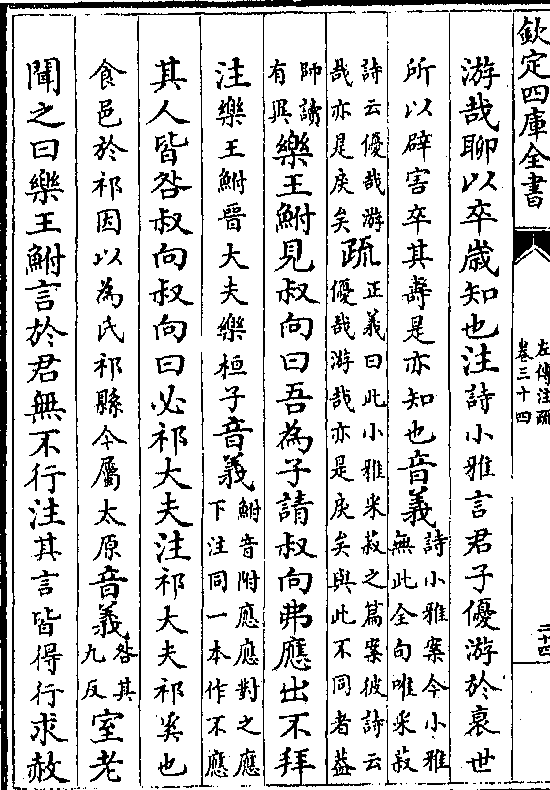 欽定四庫全書
左傳注疏
卷三十四
二十四
游哉聊以卒歲知也注詩小雅言君子優游於衰世
所以辟害卒其壽是亦知也音義詩小雅案今小雅
無此全句唯采菽
詩云優哉游
哉亦是戾矣疏正義曰此小雅采菽之篇案彼詩云
優哉游哉亦是戾矣與此不同者蓋
師讀
有異樂王鮒見叔向曰吾為子請叔向弗應出不拜
注樂王鮒晉大夫樂桓子音義鮒音附應應對之應
下注同一本作不應
其人皆咎叔向叔向曰必祁大夫注祁大夫祁奚也
食邑於祁因以為氏祁縣今屬太原音義咎其
九反室老
聞之曰樂王鮒言於君無不行注其言皆得行求赦